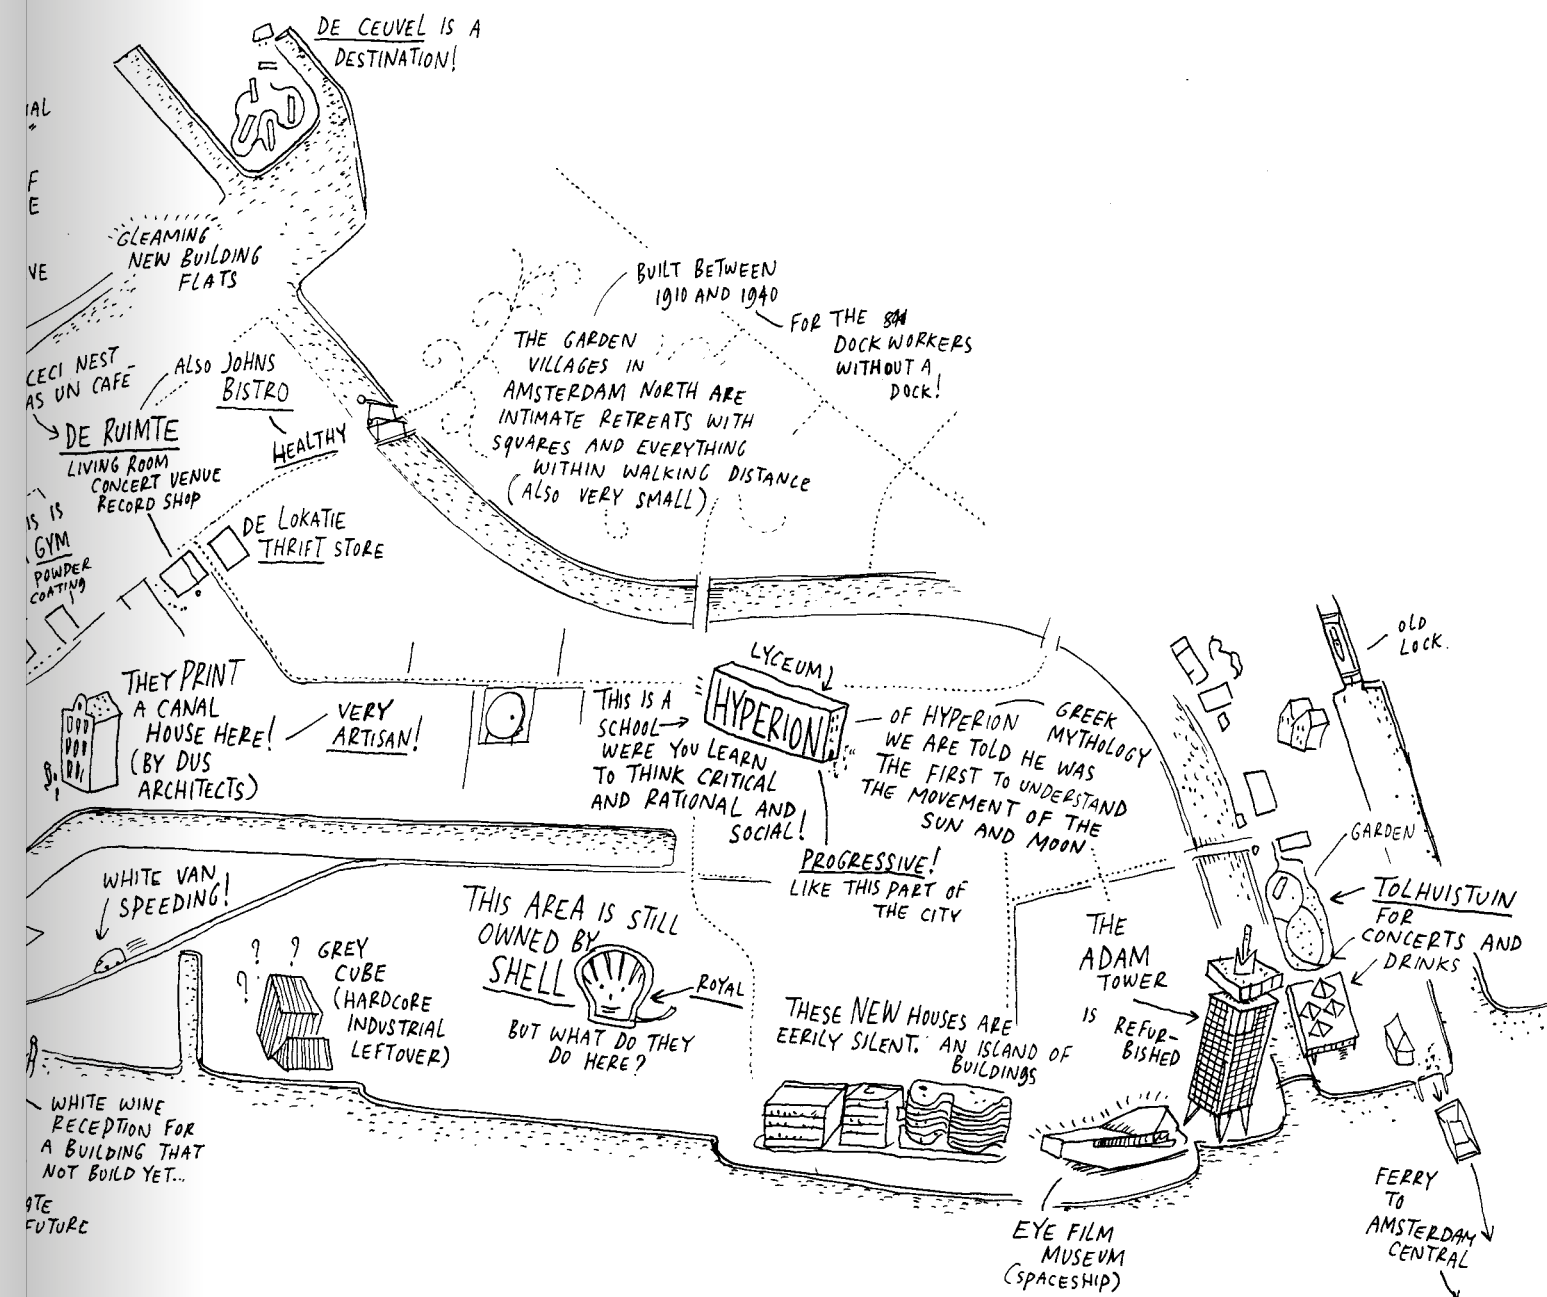 DE CEUVEL IS A
DESTINATION!
GLEAMING
NEW BUILDING
FLATS
VE
F
E
BUILT BETWEEN
1910 AND 1940
FOR THE
DOCK WORKERS
WITHOUT A
DOCK!
THE GARDEN
VILLAGES IN
AMSTERDAM NORTH ARE
INTIMATE RETREATS WITH
SQUARES AND EVERYTHING
WITHIN WALKING DISTANCE
(ALSO VERY SMALL)
CECI NEST
AS UN CAFE
ALSO JOHNS
BISTRO
HEALTHY
DE RUIMTE
LIVING ROOM
CONCERT VENUE
RECORD SHOP
DE LOKATIE
THRIFT STORE
IS IS
GYM
POWDER
COATING
THEY PRINT
A CANAL
HOUSE HERE!
(BY DUS
ARCHITECTS)
VERY
ARTISAN!
LYCEUM
HYPERION
THIS IS A
SCHOOL
WERE YOU LEARN
TO THINK CRITICAL
AND RATIONAL AND
SOCIAL!
OF HYPERION
WE ARE TOLD HE WAS
THE FIRST TO UNDERSTAND
THE MOVEMENT OF THE
SUN AND MOON
GREEK
MYTHOLOGY
PROGRESSIVE!
LIKE THIS PART OF
THE CITY
OLD
LOCK.
GARDEN
TOLHUISTUIN
FOR
CONCERTS AND
DRINKS
WHITE VAN
SPEEDING!
? ?
?
GREY
CUBE
(HARDCORE
INDUSTRIAL
LEFTOVER)
THIS AREA IS STILL
OWNED BY
SHELL
ROYAL
BUT WHAT DO THEY
DO HERE?
THE
ADAM
TOWER
IS REFUR-
BISHED
THESE NEW HOUSES ARE
EERILY SILENT. AN ISLAND OF
BUILDINGS
WHITE WINE
RECEPTION FOR
A BUILDING THAT
NOT BUILD YET...
ATE
FUTURE
EYE FILM
MUSEUM
(SPACESHIP)
FERRY
TO
AMSTERDAM
CENTRAL